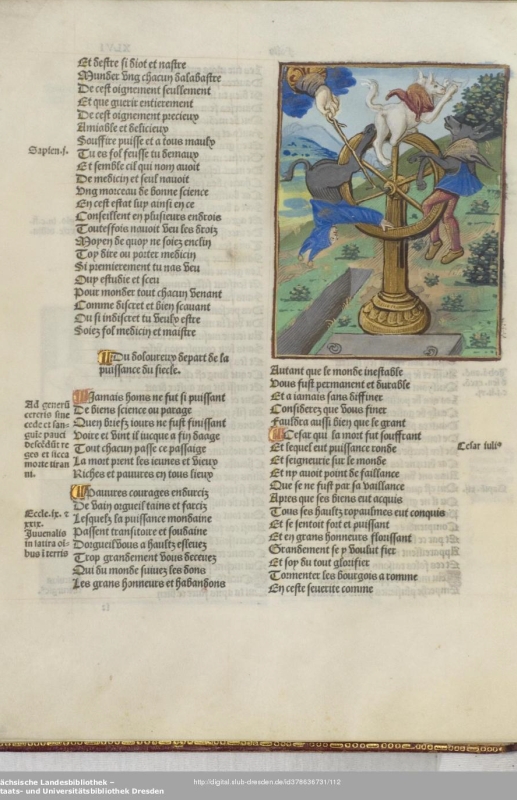 Et destre si diot et nastre
Munder vng chacun dalabastre
De cest oignement seullement
Et que guerir entierement
De cest oignement precieux
Amiable et delicieux
Souffire puisse et a tous maulx
Sapien. j.
Tu es fol feusse tu demaux
Et semble cil qui nom auoit
De medicin et seul nauoit
Vng morceau de bonne science
En cest estat luy ainsi en ce
Conseillent en plusieurs endrois
Touttesfois nauoit veu les droiz
Moyen de quoy ne soiez enclin
Toy dire ou porter medicin
Si premierement tu nas veu
Ouy estudie et sceu
Pour monder tout chacun venant
Comme discret et bien scauant
Ou si indiscret tu veulx estre
Soiez fol medicin et maistre
Du doloureux depart de la
puissance du siecle.
Jamais homs ne fut si puissant
De biens science ou parage
Quen briefz iours ne fust finissant
Voire et vint il iucque a fin daage
Tout chacun passe ce passaige
La mort prent les ieunes et vieux
Riches et pauures en tous lieux
Ad generū
cereris sine
cede et san-
guie pauci
descēdūt re
ges et sicca
morte tiran
ni.
Pauures courages endurciz
De vain orgueil tains et farciz
Lesquelz la puissance mondaine
Passent transitoire et soudaine
Dorgueil vous a haultz esleuez
Trop grandement vous deceuez
Qui du monde suiuez les dons
Les grans honneurs et habandons
Eccle. ix. z
xxix.
Juuenalis
in satira oi-
bus i terris
Autant que le monde inestable
Vous fust permanent et durable
Et a iamais sans diffiner
Considerez que vous finer
Fauldra aussi bien que le grant
Cesar qui la mort fut souffrant
Et lequel eut puissance ronde
Et seigneurie sur le monde
Et ny auoit point de faillance
Que se ne fust par sa vaillance
Apres que ses biens eut acquis
Tous ses haultz royaulmes eut conquis
Et se sentoit fort et puissant
Et en grans honneurs florissant
Grandement se y voulut fier
Et soy du tout glorifier
Tormenter les bourgois a romme
En ceste seuerite comme
Cesar iulis
Sächsische Landesbibliothek –
Staats- und Universitätsbibliothek Dresden
http://digital.slub-dresden.de/id376636731/112